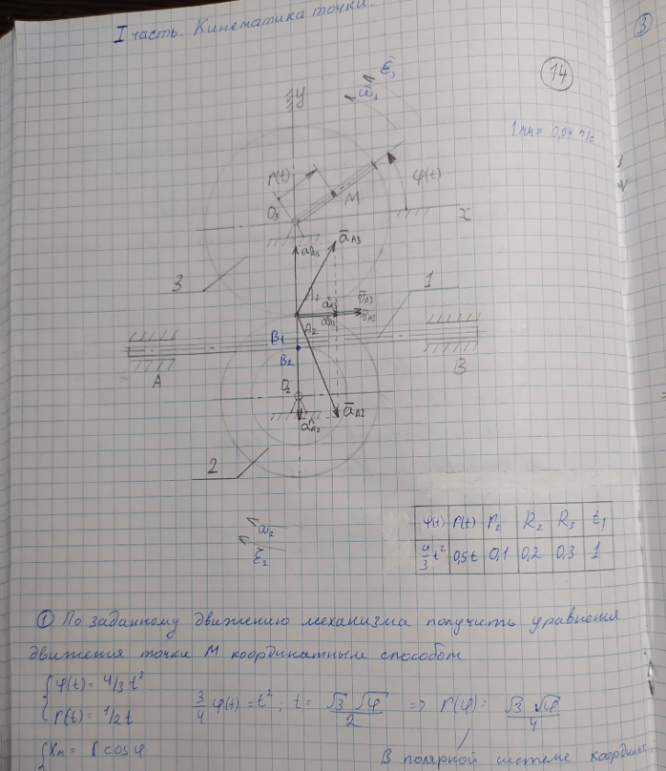 I часть. Кинематика точки.
3
14
1мм = 0,04 м/с
y
ε̄₃
ω̄₃
r(t)
M
φ(t)
O₃
x
ā_A3
3
1
A₂
B₁
B₂
A
B
O₂
ā_A2
2
ω̄₂
ε̄₂
φ(t) r(t) r₂ R₂ R₃ t₁
4/3 t² 0,5t 0,1 0,2 0,3 1
① По заданному движению механизма получить уравнения
движения точки M координатным способом
φ(t) = 4/3 t²
r(t) = 1/2 t
3/4 φ(t) = t²; t = √3 √φ / 2 => r(φ) = √3 √φ / 4
xₘ = r cos φ
В полярной системе координ